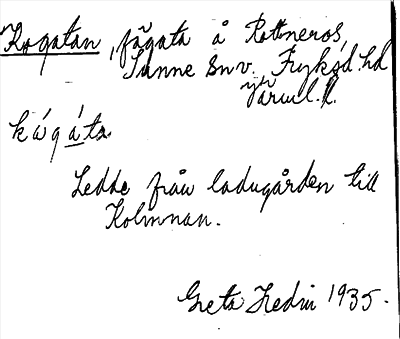 Kogatan, fägata å Rottneros,
Sunne sn v. Fryksd. hd
Värml. l.
kágáta
Ledde från ladugården till
Kolmnan.
Greta Hedin 1935.